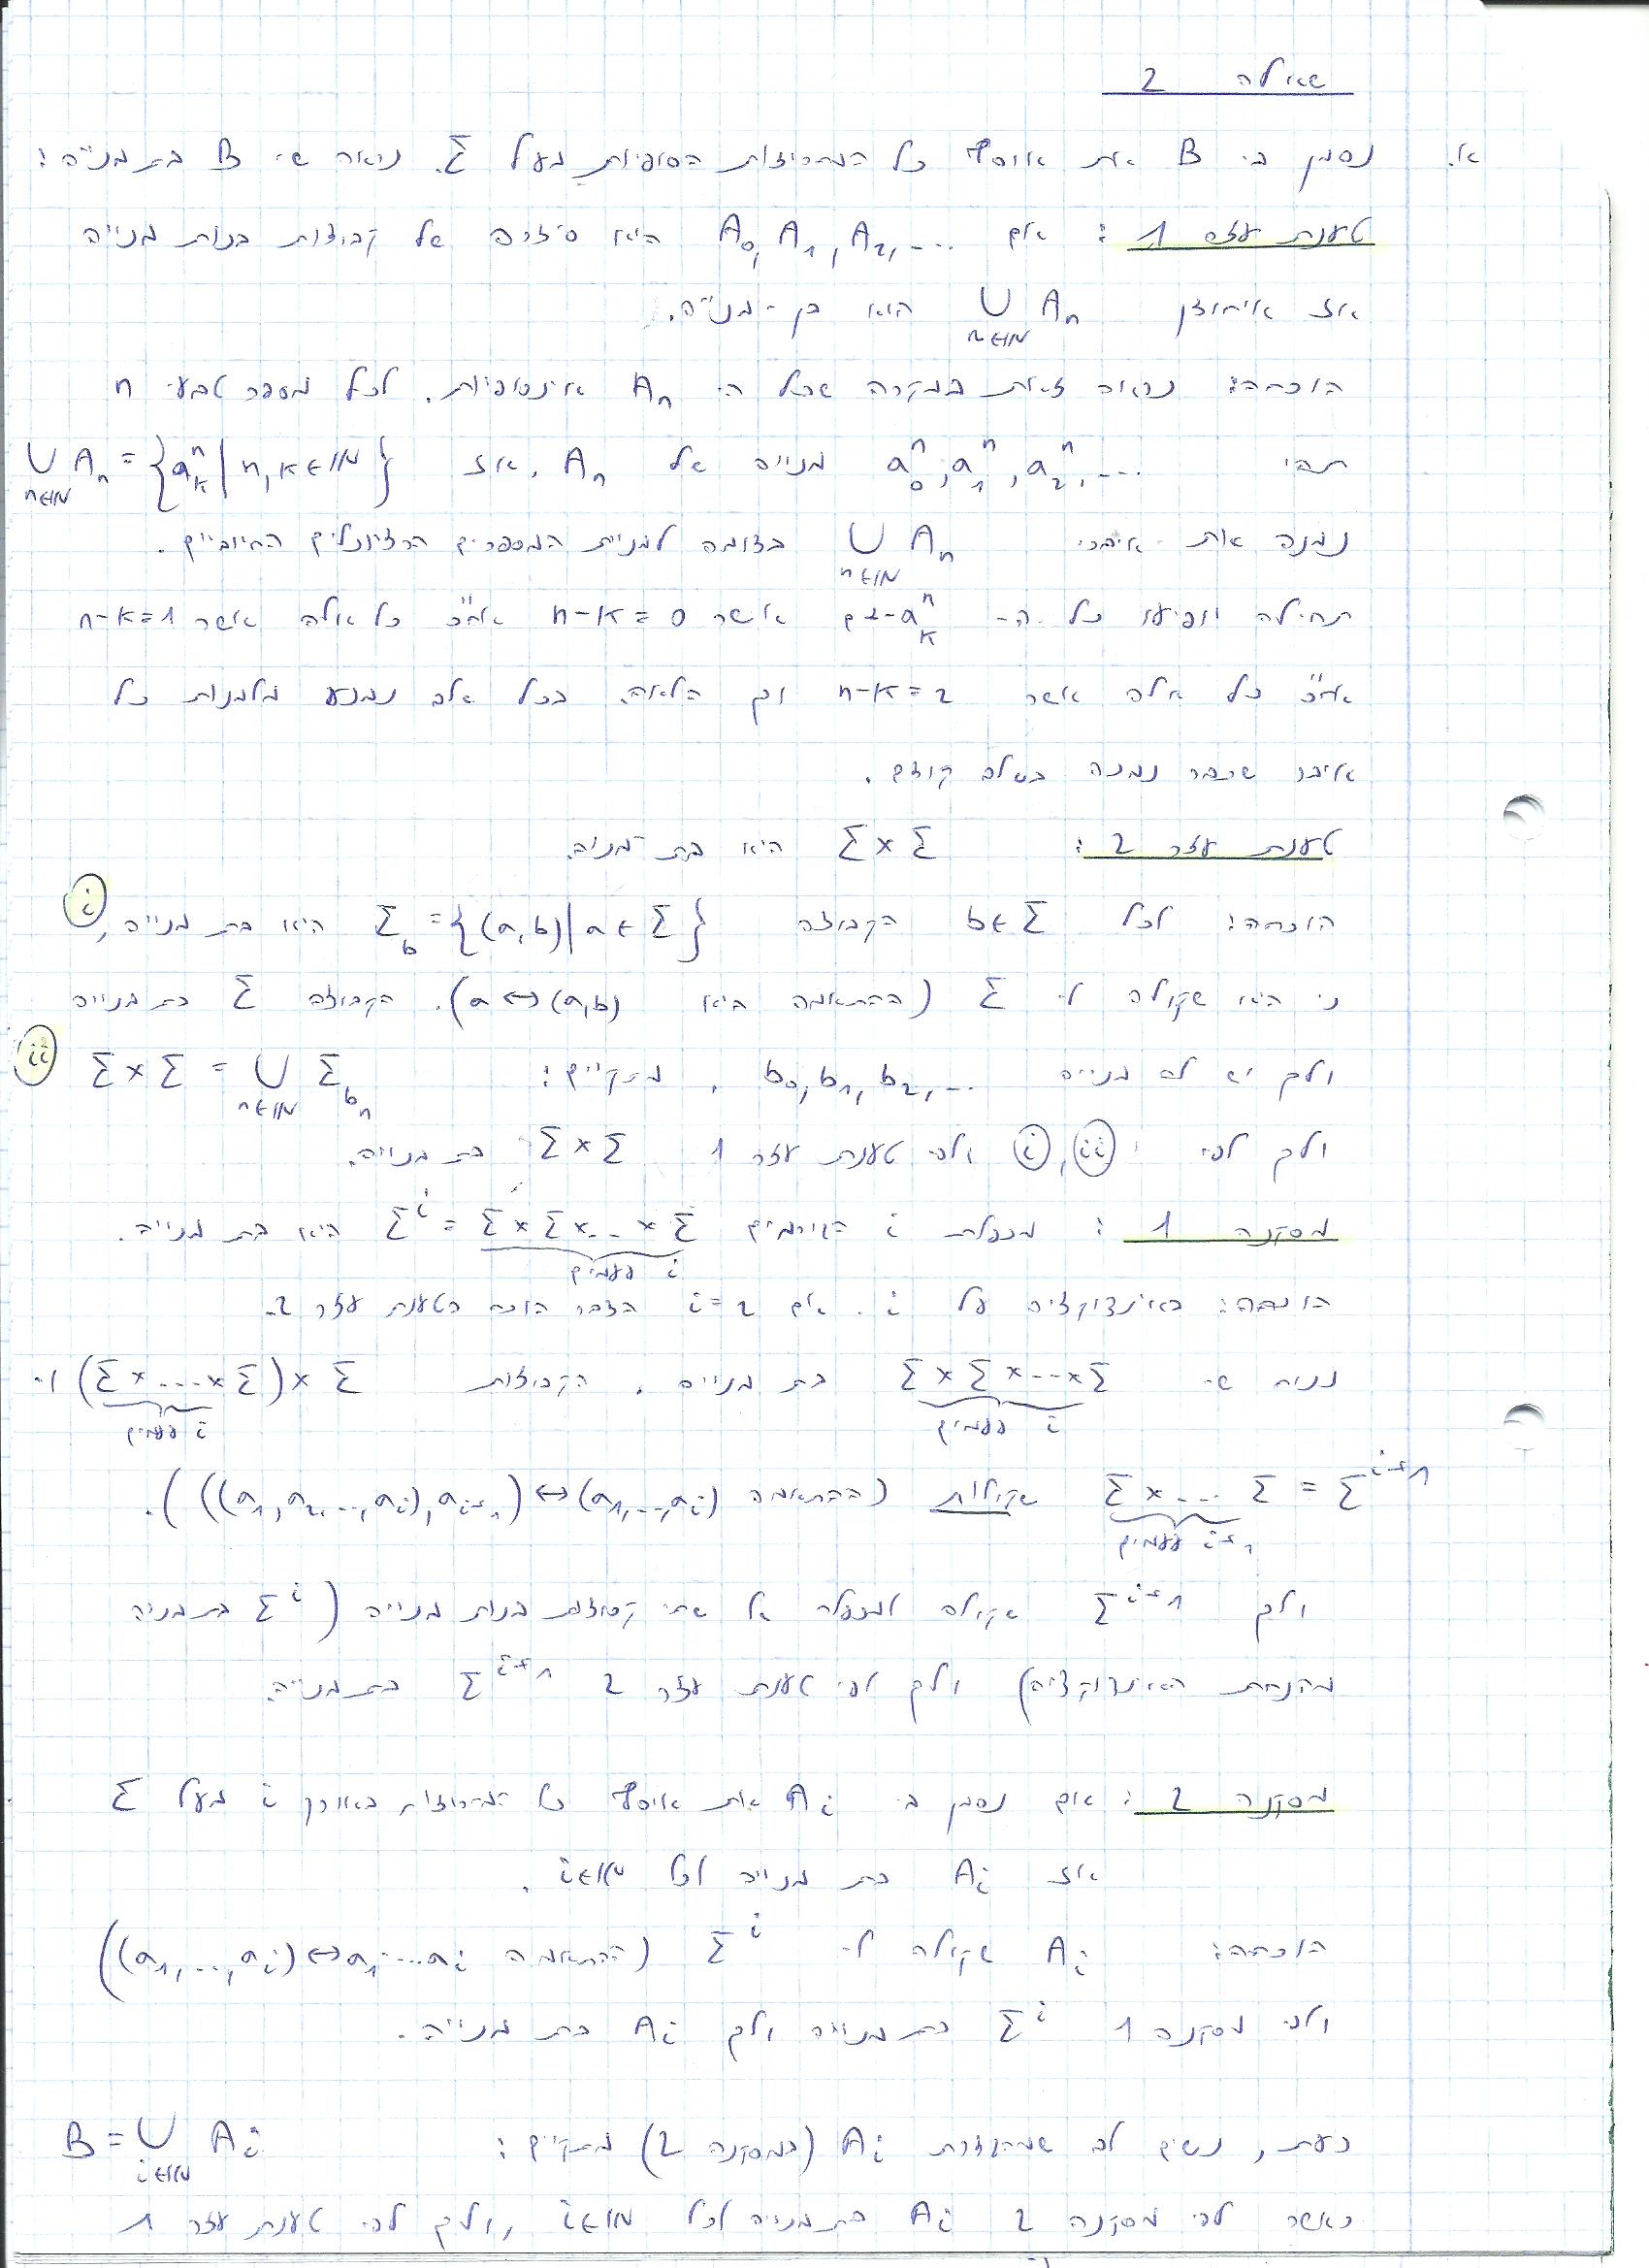 שאלה 2
א. נסמן ב- B את אוסף כל המחרוזות הסופיות מעל Σ. נראה ש- B בת מנייה:
טענת עזר 1: אם A₀, A₁, A₂, ... היא סידרה של קבוצות בנות מנייה
אז איחודן ⋃_{n∈ℕ} Aₙ הוא בן-מנייה.
הוכחה: נראה זאת במקרה שכל ה- Aₙ אינסופיות. לכל מספר טבעי n
תהי a₀ⁿ, a₁ⁿ, a₂ⁿ, ... מנייה של Aₙ, אז ⋃_{n∈ℕ} Aₙ = {aₖⁿ | n, k∈ℕ}
נמנה את איברי ⋃_{n∈ℕ} Aₙ בדומה למניית המספרים הרציונלים החיוביים.
תחילה יופיעו כל ה- aₖⁿ-ים אשר n-k=0 אח"כ כל אלה אשר n-k=1
אח"כ כל אלה אשר n-k=2 וכן הלאה. בכל שלב נמנע מלמנות כל
איבר שכבר נמנה בשלב קודם.
טענת עזר 2: Σ×Σ היא בת-מנייה.
הוכחה: לכל b∈Σ הקבוצה Σ_b = {(a,b) | a∈Σ} היא בת מנייה, (i)
כי היא שקולה ל- Σ (ההתאמה היא a↔(a,b)). הקבוצה Σ בת מנייה
ולכן יש לה מנייה b₀, b₁, b₂, ... , מתקיים: Σ×Σ = ⋃_{n∈ℕ} Σ_{bₙ} (ii)
ולכן לפי (i), (ii) ולפי טענת עזר 1 Σ×Σ בת מנייה.
מסקנה 1: מכפלת i הגורמים Σⁱ = Σ×Σ×...×Σ (i פעמים) היא בת מנייה.
הוכחה: באינדוקציה על i. אם i=2 הדבר הוכח בטענת עזר 2.
נניח ש- Σ×Σ×...×Σ (i פעמים) בת מנייה. הקבוצות (Σ×...×Σ)×Σ (i פעמים) ו-
Σ×...Σ = Σⁱ⁺¹ (i+1 פעמים) שקולות (ההתאמה ((a₁,a₂,...,aᵢ),aᵢ₊₁)↔(a₁,...,aᵢ)).
ולכן Σⁱ⁺¹ שקולה למכפלה של שתי קבוצות בנות מנייה (Σⁱ בת מניה
מהנחת האינדוקציה) ולכן לפי טענת עזר 2 Σⁱ⁺¹ בת מנייה.
מסקנה 2: אם נסמן ב- Aᵢ את אוסף כל המחרוזות באורך i מעל Σ
אז Aᵢ בת מנייה לכל i∈ℕ.
הוכחה: Aᵢ שקולה ל- Σⁱ (ההתאמה (a₁,...,aᵢ)↔a₁...aᵢ)
ולפי מסקנה 1 Σⁱ בת מנייה ולכן Aᵢ בת מנייה.
כעת, נשים לב שמהגדרת Aᵢ (במסקנה 2) מתקיים: B = ⋃_{i∈ℕ} Aᵢ
כאשר לפי מסקנה 2 Aᵢ בת מנייה לכל i∈ℕ, ולכן לפי טענת עזר 1